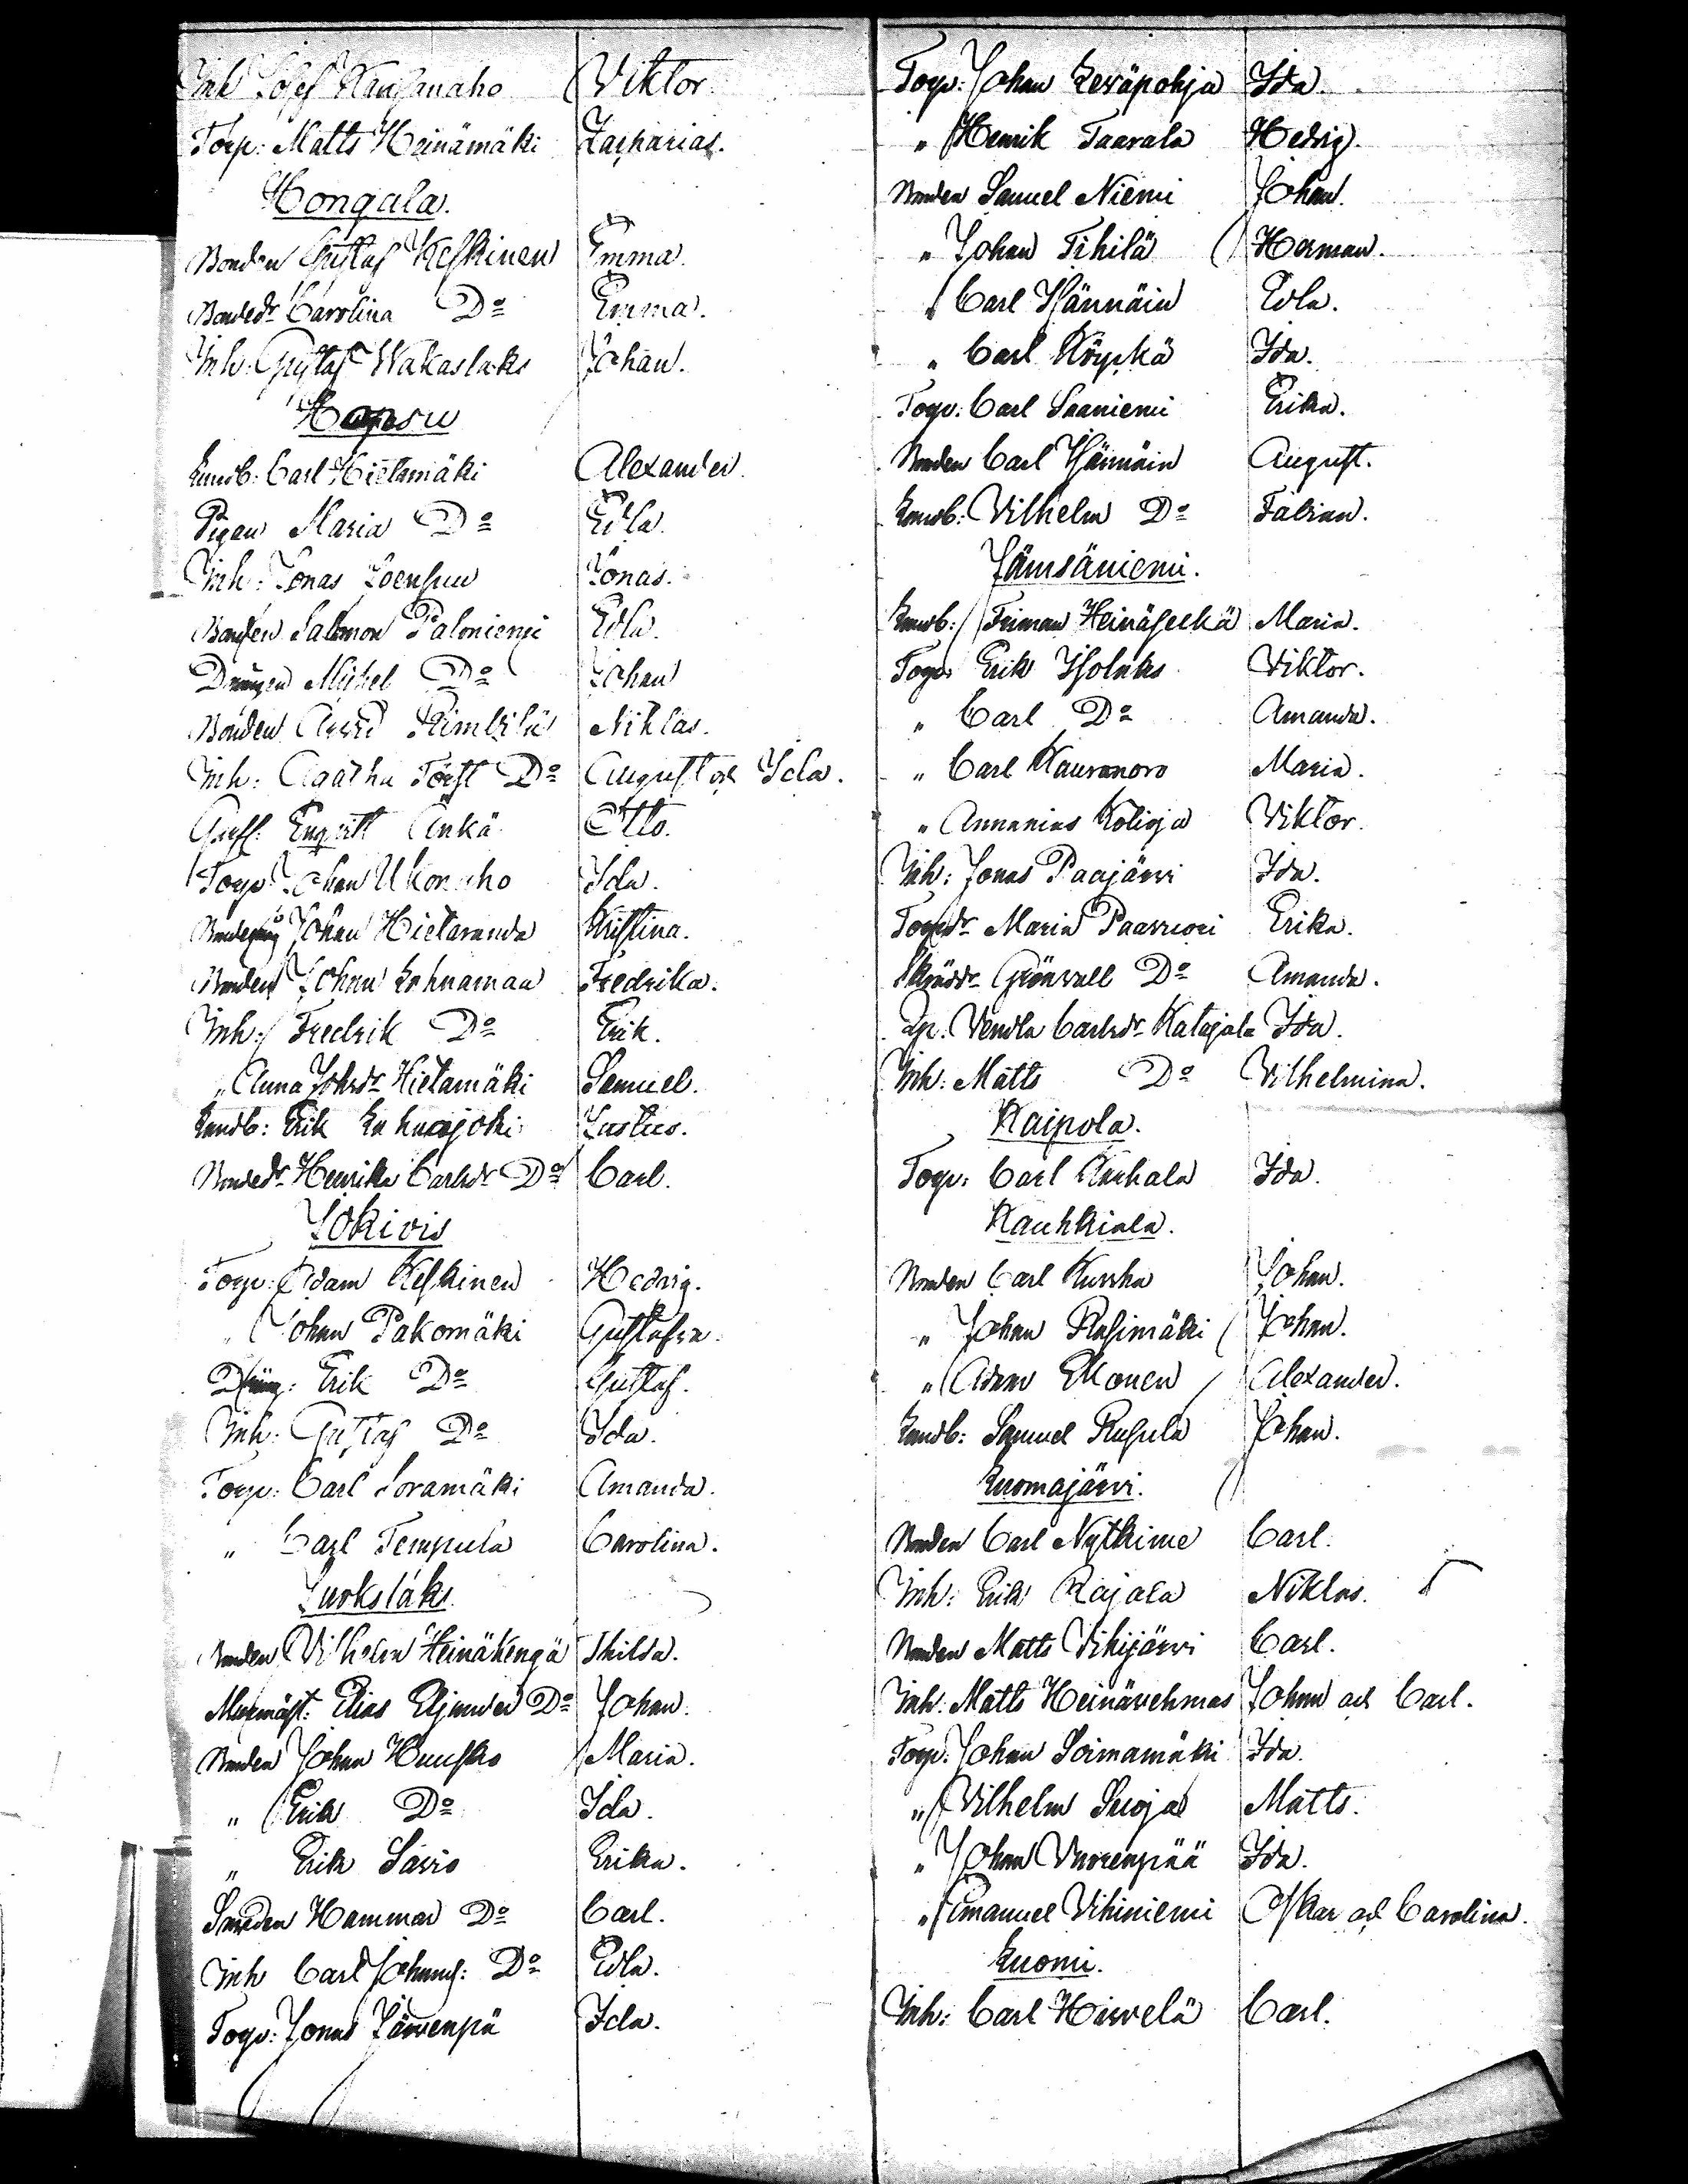 Inh Josef Kauhanaho Viktor.
Torp: Matts Heinämäki Zacharias.
Hongala.
Bonden Gustaf Keskinen Emma.
Bondedr Carolina Do Emma.
Inh: Gustaf Wakaslaks Johan.
Hopsu
Landb: Carl Hietamäki Alexander.
Pigan Maria Do Edla.
Inh: Jonas Joensuu Jonas.
Bonden Salomon Paloniemi Edla.
Drängen Michel Do Johan
Bonden Niklas.
Inh: Agatha Do August och Ida.
Otto.
Torp Johan Ukonaho Ida.
Johan Hietaranda Kristina.
Bonden Johan Lahnamaa Fredrika.
Inh: Fredrik Do Erik.
" Anna Johsdr Hietamäki Samuel.
Landb: Erik Lahnajoki Justus.
Bondedr Henrika Carlsdr Do Carl.
Jokivis
Torp: Adam Keskinen Hedvig.
" Johan Pakomäki Gustafva.
Dräng: Erik Do Gustaf.
Inh: Gustaf Do Ida.
Torp: Carl Soramäki Amanda.
" Carl Tempula Carolina.
Juokslaks.
Bonden Vilhelm Heinäkengä Thilda.
Elias Do Johan.
Bonden Johan Huusko Maria.
" Erik Do Ida.
" Erik Savio Erika.
Smeden Hammar Do Carl.
Inh Carl Johans: Do Edla.
Torp: Jonas Järvenpä Ida.
Torp: Johan Leväpohja Ida.
" Henrik Taavala Hedvig.
Bonden Samuel Niemi Johan.
" Johan Tihilä Herman.
" Carl Isännäin Edla.
" Carl Köpkä Ida.
Torp: Carl Saaniemi Erika.
Bonden Carl Isännäin August.
Landb: Vilhelm Do Fabian.
Jämsäniemi.
Landb: Heinäselkä Maria.
Torp: Erik Isolaks Viktor.
" Carl Do Amanda.
" Carl Kauranoro Maria.
" Annanias Kolioja Viktor.
Inh: Jonas Paajärvi Ida.
Torpdr Maria Paavuori Erika.
Grönvall Do Amanda.
Vendla Carlsdr Katajala Ida.
Inh: Matts Do Vilhelmina.
Kaipola.
Torp: Carl Anhala Ida.
Kauhkiala.
Bonden Carl Johan.
" Johan Rasimäki Johan.
" Adam Ekonen Alexander.
Landb: Samuel Rusula Johan.
Luomajärvi.
Bonden Carl Nytkime Carl.
Inh: Erik Rajala Niklas.
Bonden Matts Vihijärvi Carl.
Inh: Matts Heinävehmas Johan och Carl.
Torp: Johan Soimamäki Ida.
" Vilhelm Suoja Matts.
" Johan Vuorenpää Ida.
" Emanuel Vihiniemi Oskar och Carolina.
Luomi.
Inh: Carl Hirvelä Carl.